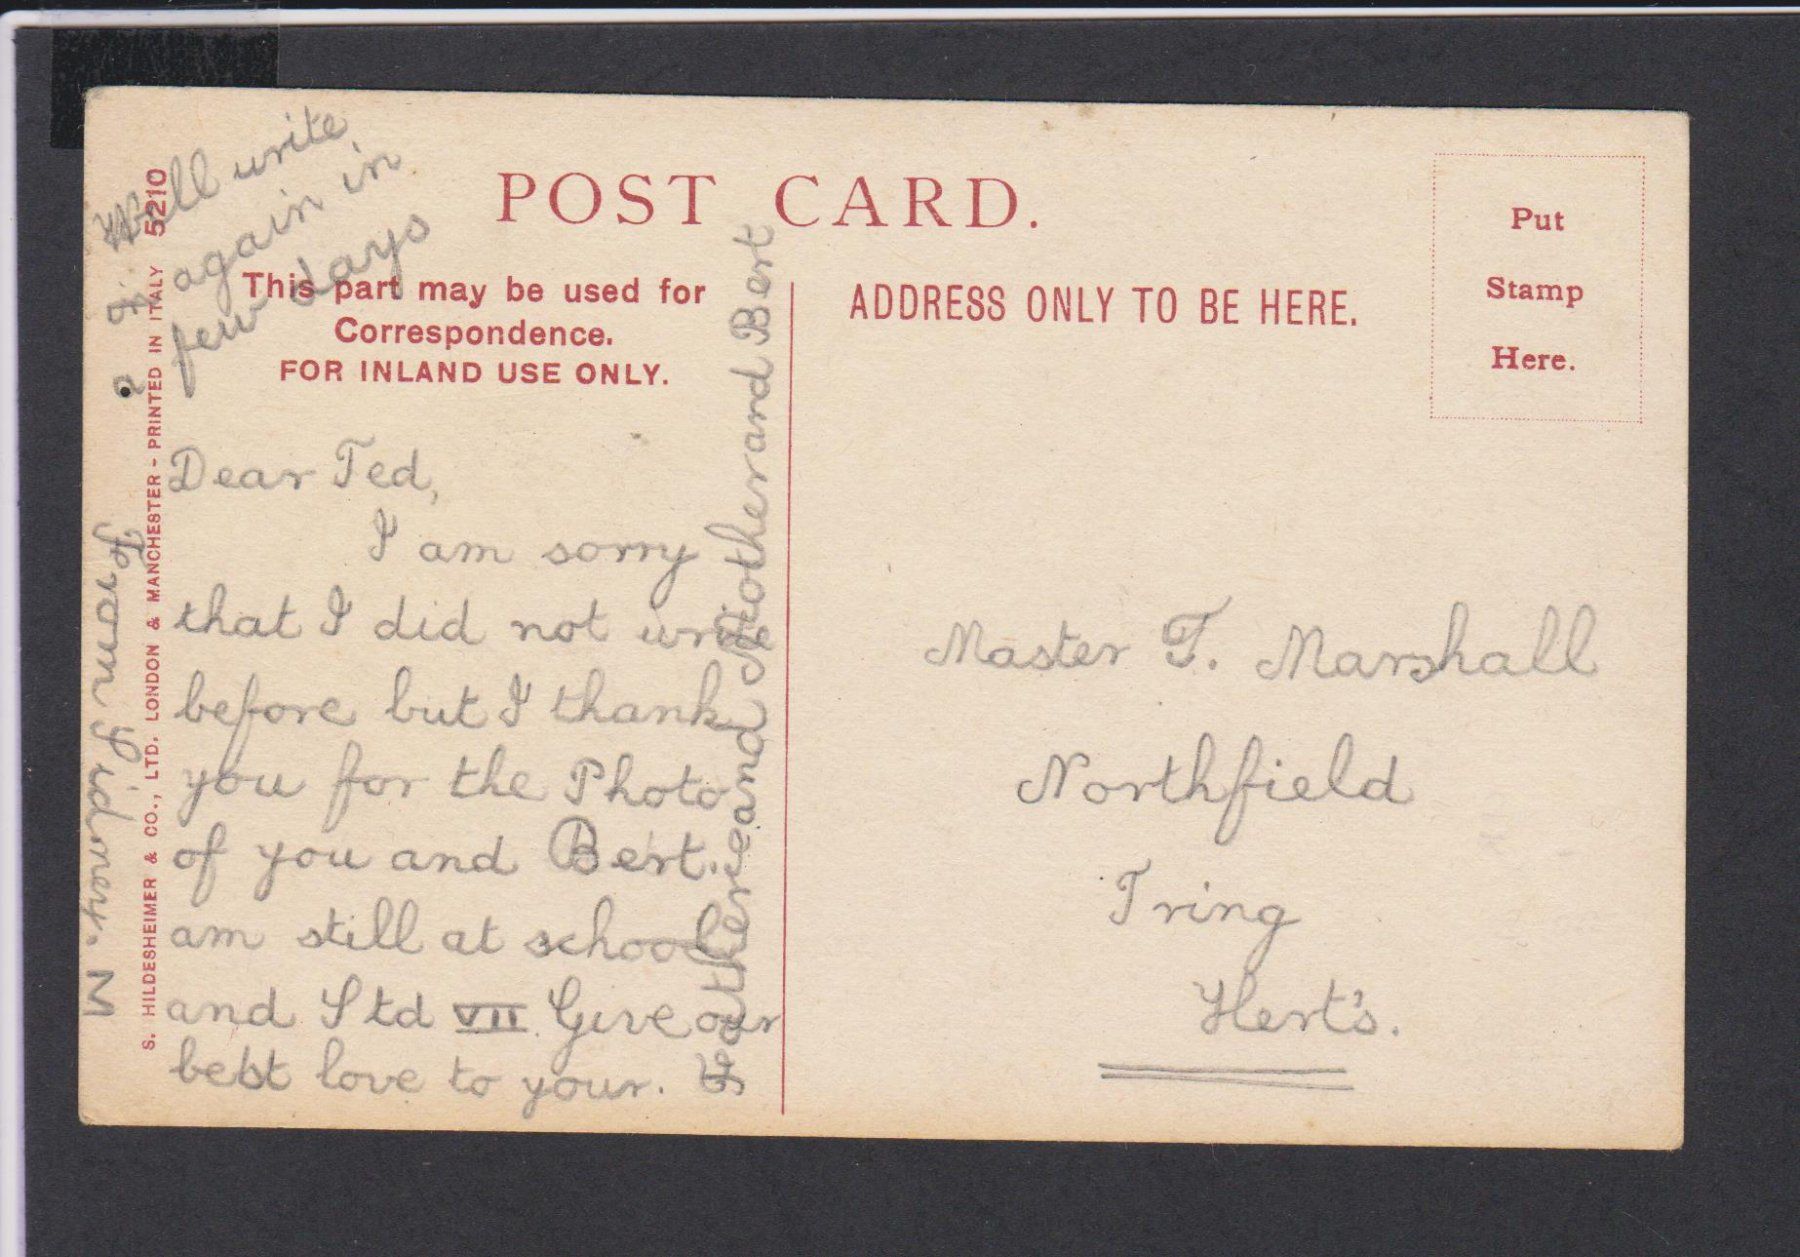 POST CARD.
This part may be used for
Correspondence.
FOR INLAND USE ONLY.
ADDRESS ONLY TO BE HERE.
Put
Stamp
Here.
S. HILDESHEIMER & CO., LTD. LONDON & MANCHESTER - PRINTED IN ITALY 5210
Dear Ted,
I am sorry
that I did not write
before but I thank
you for the Photo
of you and Bert.
am still at school
and Std VII. Give our
best love to your.
Father and Mother and Bert
From Sidney. M
I Will write
again in
a few days
Master T. Marshall
Northfield
Tring
Hert's.